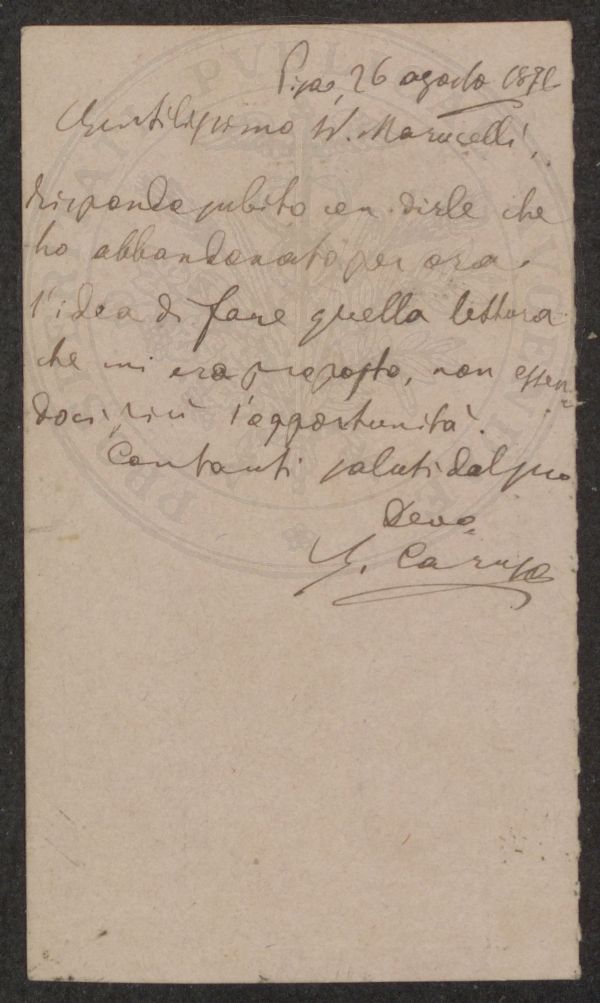 Pisa, 26 agosto 1871
Gentilissimo Sr. Marucelli,
Rispondo subito con dirle che
ho abbandonato per ora
l'idea di fare quella lettura
che mi era proposto, non essen=
doci più l'opportunità.
Con tanti saluti dal suo
Devo.
G. Caruso